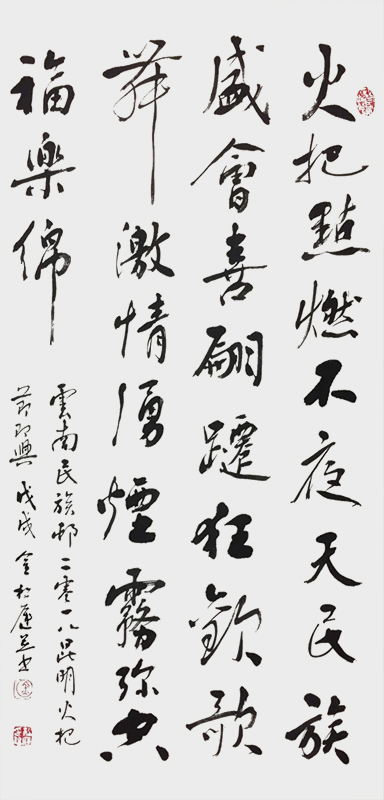 火把點燃不夜天民族
盛會喜翩躚狂歡歌
舞激情湧煙霧弥空
福樂綿
雲南民族邨二零一八昆明火把
節即興戊戌金松並書